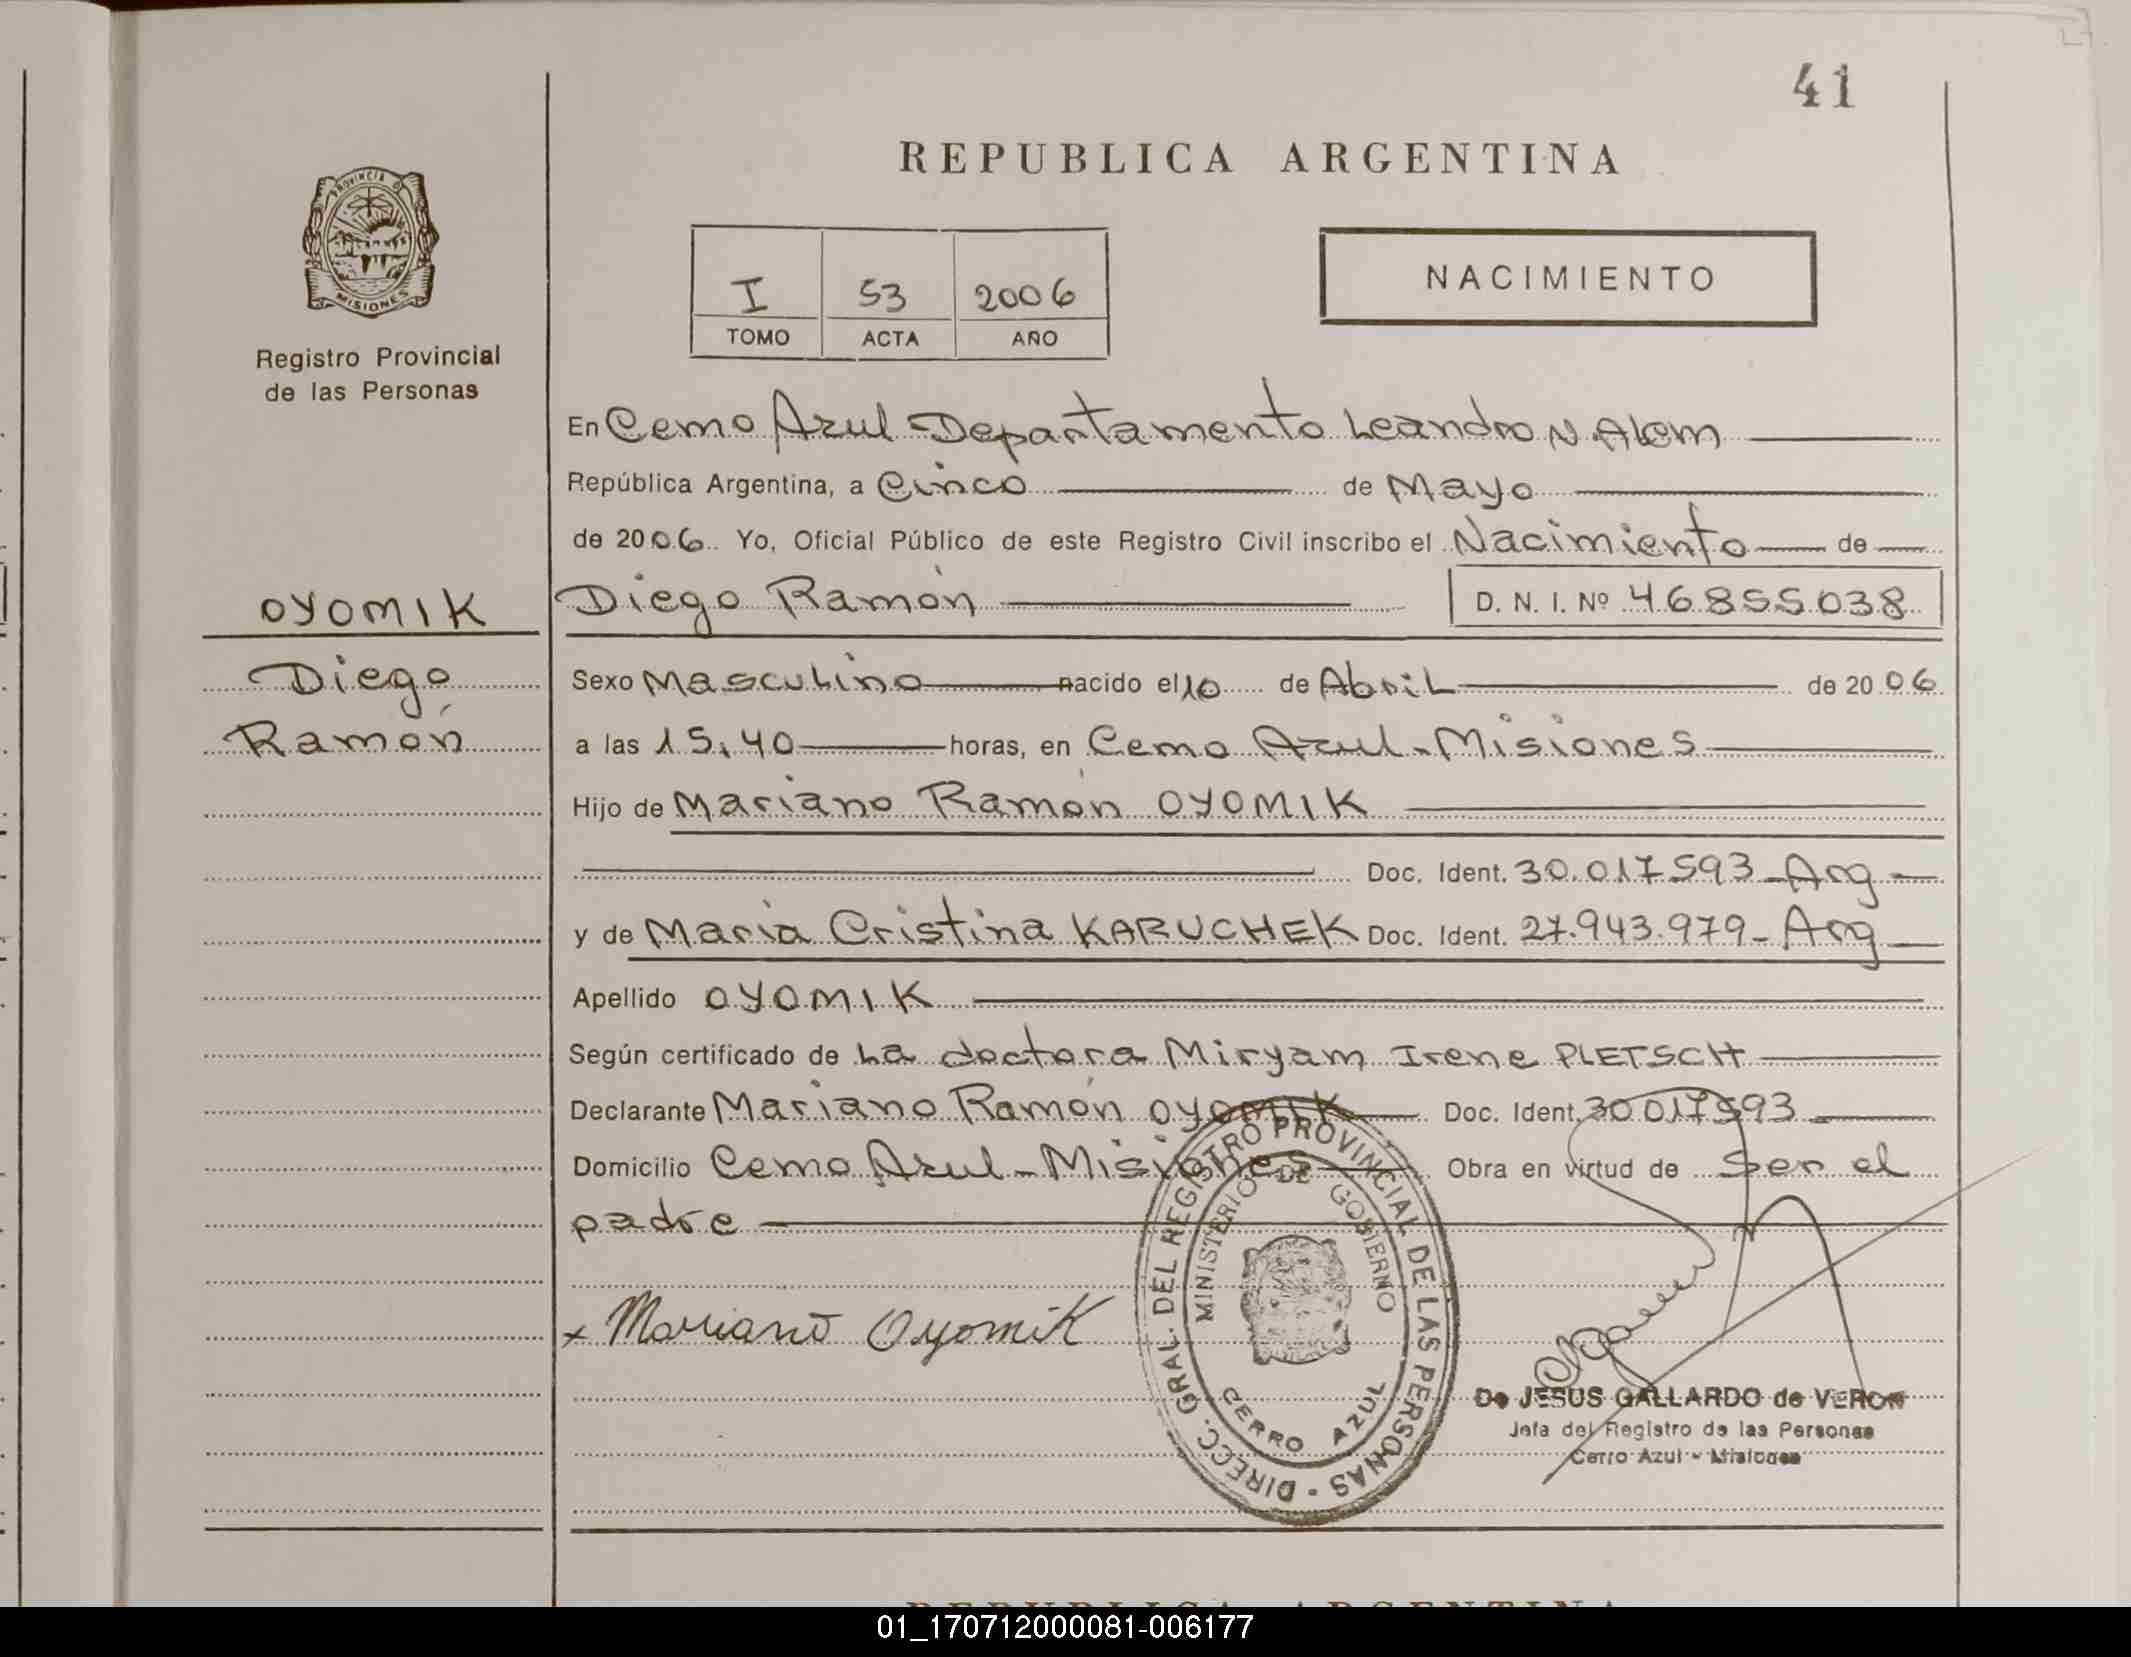 41
REPUBLICA ARGENTINA
PROVINCIA D
MISIONES
Registro Provincial
de las Personas
I 53 2006
TOMO ACTA AÑO
NACIMIENTO
En Cerro Azul Departamento Leandro N. Alem
República Argentina, a Cinco de Mayo
de 2006. Yo, Oficial Público de este Registro Civil inscribo el Nacimiento de
Diego Ramón D. N. I. Nº 46855038
OYOMIK
Diego
Ramón
Sexo Masculino nacido el 10 de Abril de 2006
a las 15,40 horas, en Cerro Azul - Misiones
Hijo de Mariano Ramón OYOMIK
Doc. Ident. 30.017.593 - Arg
y de Maria Cristina KARUCHEK Doc. Ident. 27.943.979 - Arg
Apellido OYOMIK
Según certificado de La doctora Miryam Irene PLETSCH
Declarante Mariano Ramón OYOMIK Doc. Ident. 30.017.593
Domicilio Cerro Azul - Misiones Obra en virtud de Ser el
padre
DIRECC. GRAL. DEL REGISTRO PROVINCIAL DE LAS PERSONAS -
MINISTERIO DE GOBIERNO
CERRO AZUL
x Mariano Oyomik
De JESUS GALLARDO de VERON
Jefa del Registro de las Personas
Cerro Azul - Misiones
REPUBLICA ARGENTINA
01_170712000081-006177